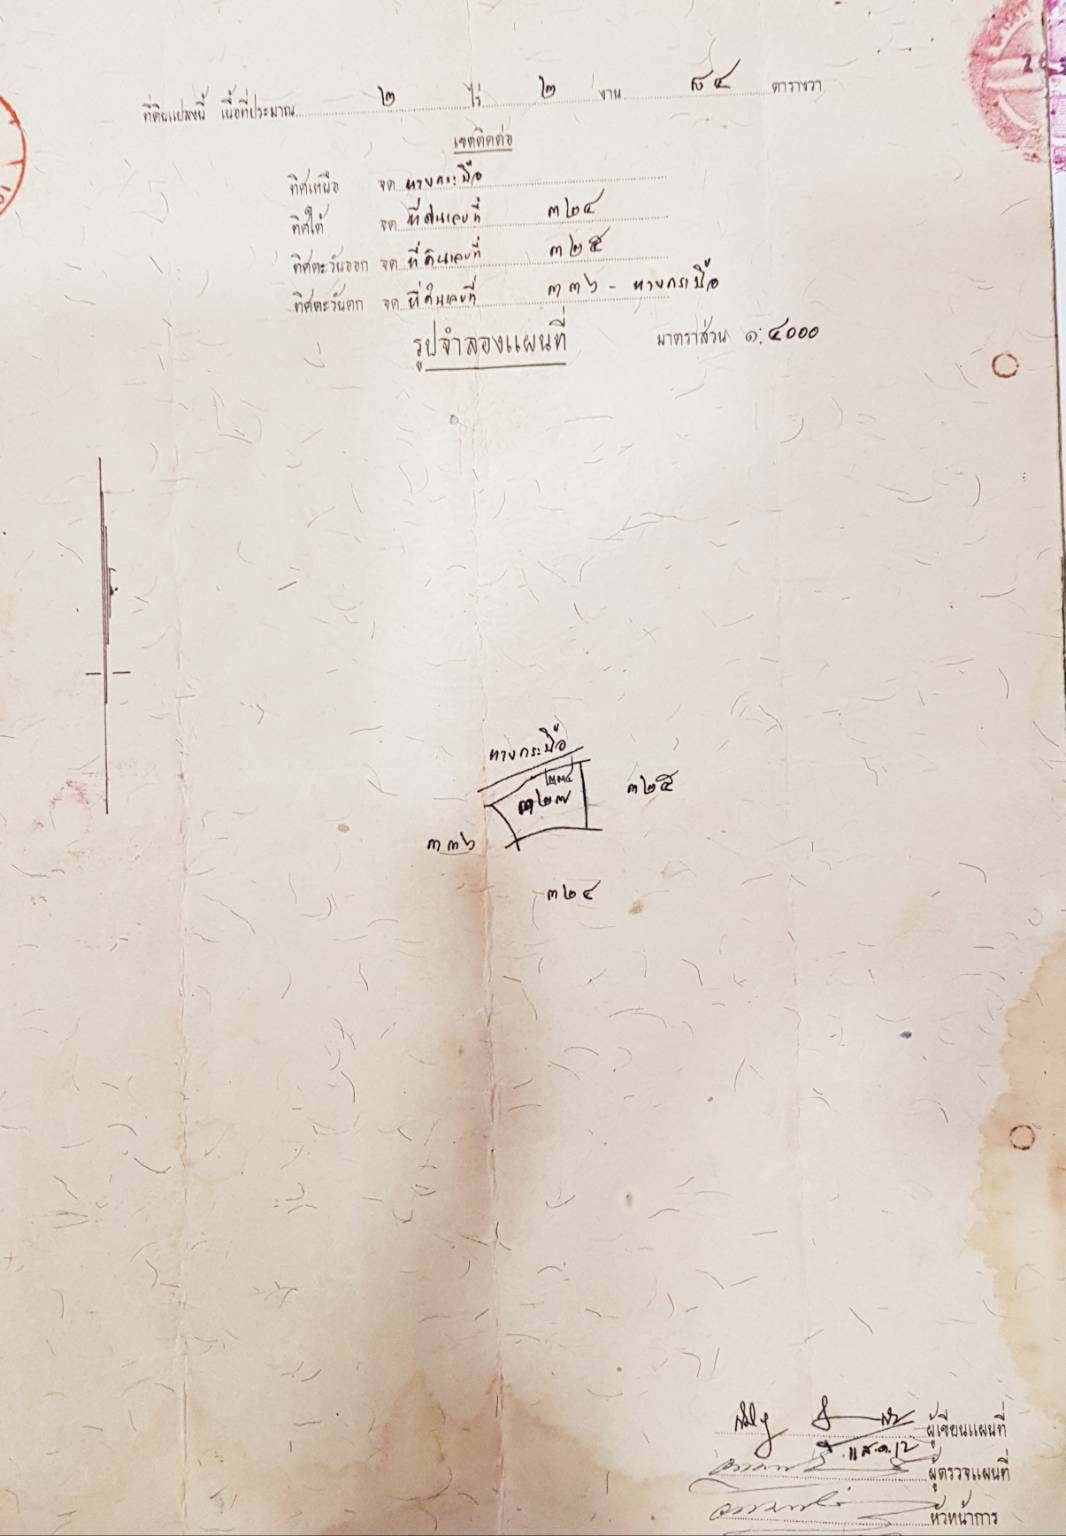 ที่ดินแปลงนี้ เนื้อที่ประมาณ ๒ ไร่ ๒ งาน ๘๔ ตารางวา
เขตติดต่อ
ทิศเหนือ จด ทางกระบือ
ทิศใต้ จด ที่ดินเลขที่ ๓๒๔
ทิศตะวันออก จด ที่ดินเลขที่ ๓๒๕
ทิศตะวันตก จด ที่ดินเลขที่ ๓๓๖ - ทางกระบือ
รูปจำลองแผนที่ มาตราส่วน ๑:๔๐๐๐
ทางกระบือ
๓๒๗
๓๒๕
๓๓๖
๓๒๔
ผู้เขียนแผนที่
ผู้ตรวจแผนที่
หัวหน้าการ